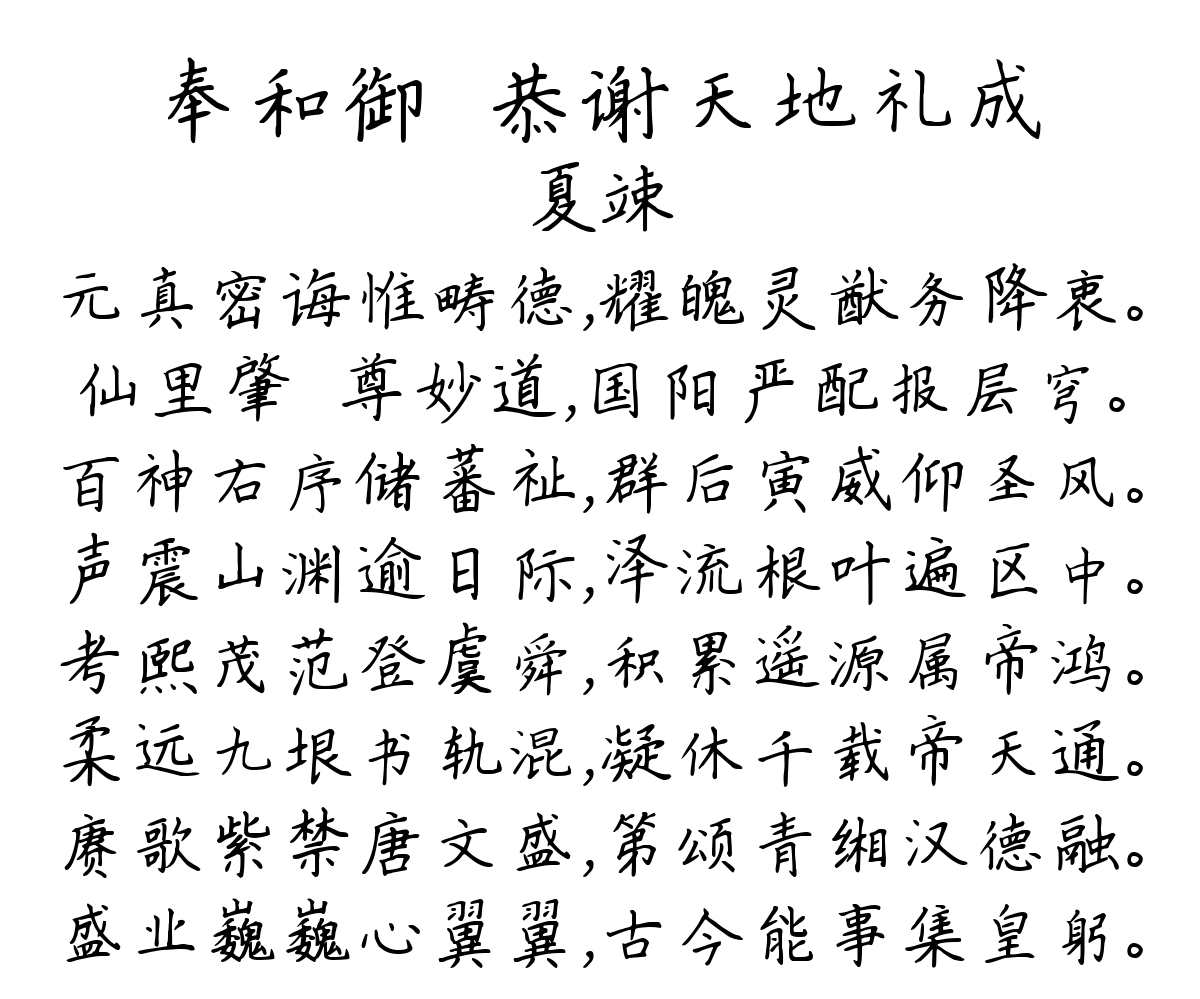 奉和御 恭谢天地礼成
夏竦
元真密诲惟畴德,耀魄灵猷务降衷。
仙里肇 尊妙道,国阳严配报层穹。
百神右序储蕃祉,群后寅威仰圣风。
声震山渊逾日际,泽流根叶遍区中。
考熙茂范登虞舜,积累遥源属帝鸿。
柔远九垠书轨混,凝休千载帝天通。
赓歌紫禁唐文盛,第颂青缃汉德融。
盛业巍巍心翼翼,古今能事集皇躬。